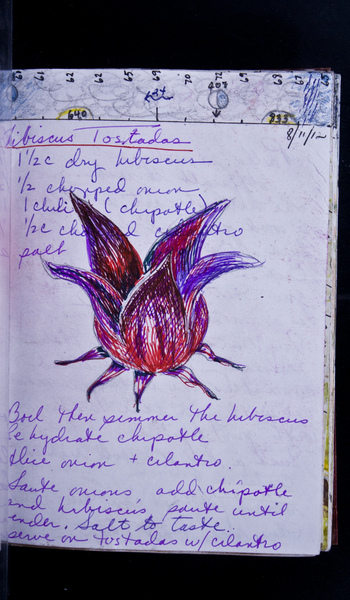 62 61 62 65 69 70 72 67 68
407
640 833
Hibiscus Tostadas 8/11/12
1 1/2 c dry hibiscus
1/2 chopped onion
1 chili (chipotle)
1/2 c cilantro
salt
Boil then simmer the hibiscus
Rehydrate chipotle
slice onion + cilantro.
Saute onions, add chipotle
and hibiscus, saute until
tender. Salt to taste.
serve on tostadas w/ cilantro